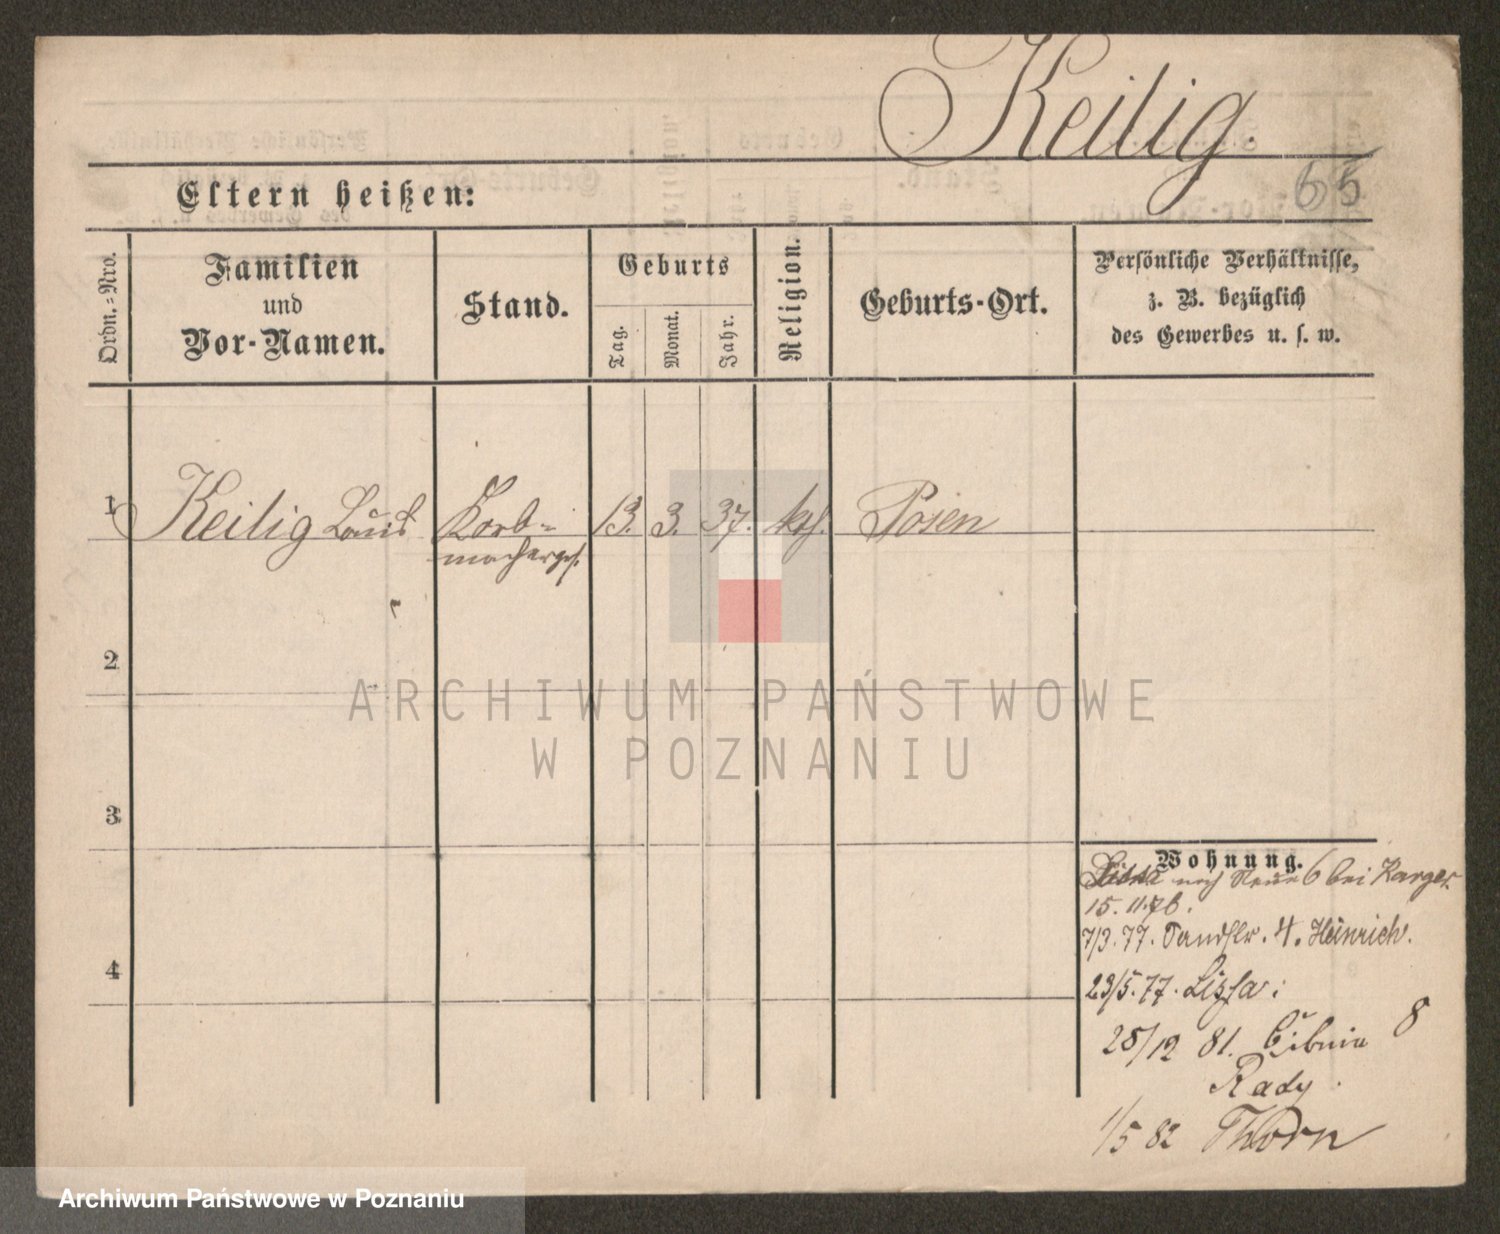 Keilig.
65
Eltern heißen:
Ordn.-Nro.
Familien
und
Vor-Namen.
Stand.
Geburts
Tag.
Monat.
Jahr.
Religion.
Geburts-Ort.
Persönliche Verhältnisse,
z. B. bezüglich
des Gewerbes u. s. w.
1 Keilig Louis Korb- 13. 3. 37. kth. Posen
machergs.
2
ARCHIWUM PAŃSTWOWE
W POZNANIU
3
Wohnung.
Lissa nach Neue 6 bei Karger
15.11.76.
7/3.77. 4. Heinrich.
4
23/5.77. Lissa:
25/12 81. 8
Rady
1/5 82 Thorn
Archiwum Państwowe w Poznaniu